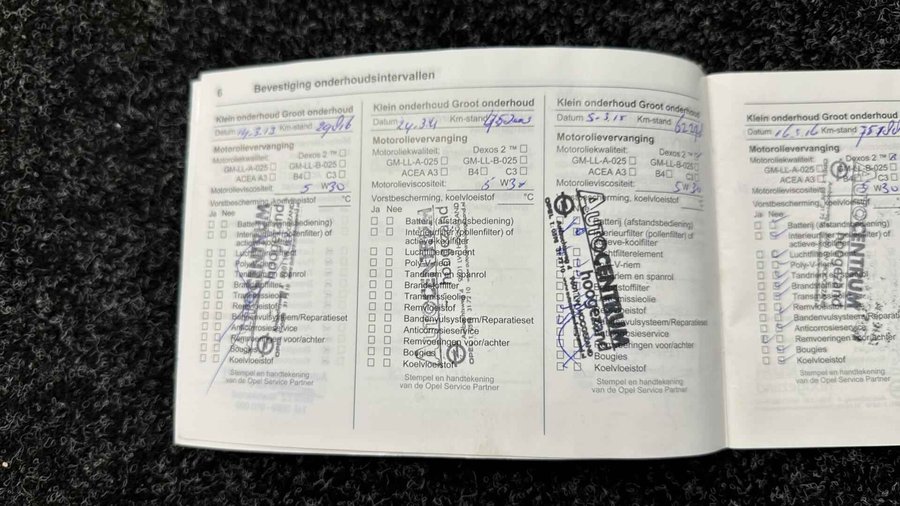 6 Bevestiging onderhoudsintervallen
Klein onderhoud Groot onderhoud
Datum 14.3.13 Km-stand
Motorolievervanging
Motoroliekwaliteit: Dexos 2 ™
GM-LL-A-025 GM-LL-B-025
ACEA A3 B4 C3
Motorolieviscositeit: 5 W30
Vorstbescherming, koelvloeistof °C
Ja Nee
Batterij (afstandsbediening)
Interieurfilter (pollenfilter) of
actieve-koolfilter
Luchtfilterelement
Poly-V-riem
Tandriem en spanrol
Brandstoffilter
Transmissieolie
Remvloeistof
Bandenvulsysteem/Reparatieset
Anticorrosieservice
Remvoeringen voor/achter
Bougies
Koelvloeistof
Stempel en handtekening
van de Opel Service Partner
Klein onderhoud Groot onderhoud
Datum Km-stand
Motorolievervanging
Motoroliekwaliteit: Dexos 2 ™
GM-LL-A-025 GM-LL-B-025
ACEA A3 B4 C3
Motorolieviscositeit: 5 W30
Vorstbescherming, koelvloeistof °C
Ja Nee
Batterij (afstandsbediening)
Interieurfilter (pollenfilter) of
actieve-koolfilter
Luchtfilterelement
Poly-V-riem
Tandriem en spanrol
Brandstoffilter
Transmissieolie
Remvloeistof
Bandenvulsysteem/Reparatieset
Anticorrosieservice
Remvoeringen voor/achter
Bougies
Koelvloeistof
Stempel en handtekening
van de Opel Service Partner
Klein onderhoud Groot onderhoud
Datum 5-3.15 Km-stand
Motorolievervanging
Motoroliekwaliteit: Dexos 2 ™
GM-LL-A-025 GM-LL-B-025
ACEA A3 B4 C3
Motorolieviscositeit: 5 W30
Vorstbescherming, koelvloeistof °C
Batterij (afstandsbediening)
Interieurfilter (pollenfilter) of
actieve-koolfilter
Luchtfilterelement
Poly-V-riem
Tandriem en spanrol
Brandstoffilter
Transmissieolie
Remvloeistof
Bandenvulsysteem/Reparatieset
Anticorrosieservice
Remvoeringen voor/achter
Bougies
Koelvloeistof
Stempel en handtekening
van de Opel Service Partner
AUTOCENTRUM
hoogezand
OPEL
Klein onderhoud Groot onderhoud
Datum 16.3.16 Km-stand
Motorolievervanging
Motoroliekwaliteit: Dexos 2 ™
GM-LL-A-025 GM-LL-B-025
ACEA A3 B4 C3
Motorolieviscositeit: 5 W30
Vorstbescherming, koelvloeistof
Ja Nee
Batterij (afstandsbediening)
Interieurfilter (pollenfilter) of
actieve-koolfilter
Luchtfilterelement
Poly-V-riem
Tandriem en spanrol
Brandstoffilter
Transmissieolie
Remvloeistof
Bandenvulsysteem/Reparatieset
Anticorrosieservice
Remvoeringen voor/achter
Bougies
Koelvloeistof
Stempel en handtekening
van de Opel Service Partner
AUTOCENTRUM
hoogezand